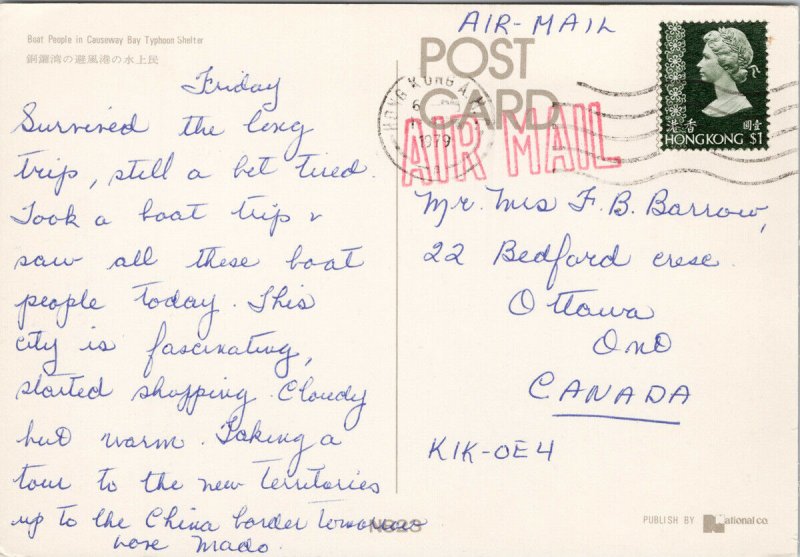 Boat People in Causeway Bay Typhoon Shelter
銅鑼湾の避風港の水上民
Friday
Survived the long
trip, still a bit tired.
Took a boat trip &
saw all these boat
people today. This
city is fascinating,
started shopping. Cloudy
but warm. Taking a
tour to the new Territories
up to the China border Tomorrow
love Mado.
N323
AIR-MAIL
POST
CARD
HONG KONG
6
1979
AIR MAIL
香港 壹圓
HONG KONG $1
Mr. Mrs F. B. Barrow,
22 Bedford cresc.
Ottawa
Ont
CANADA
K1K-0E4
PUBLISH BY National co.